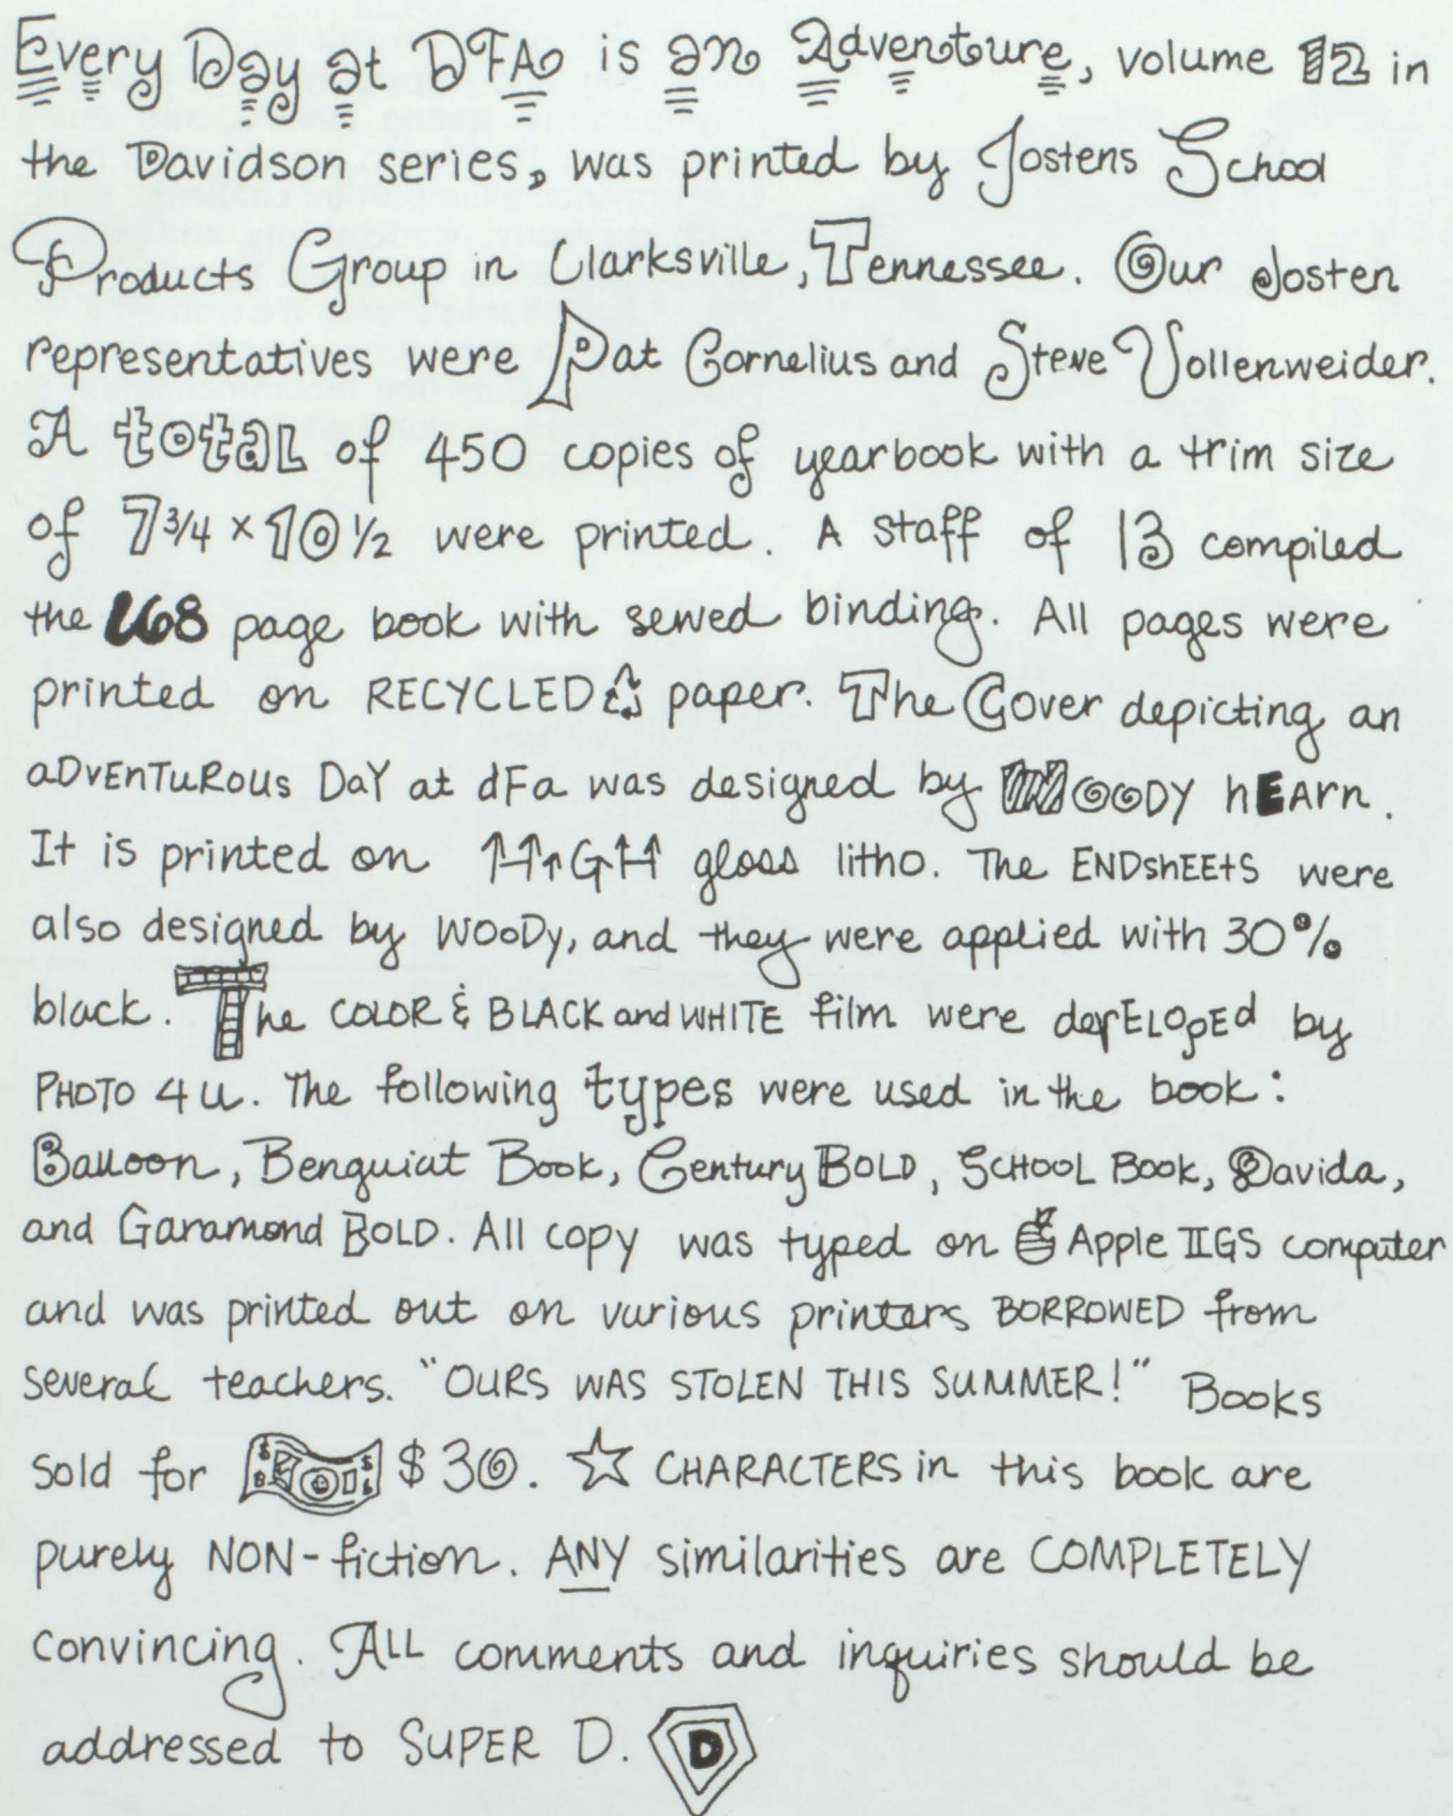 Every Day at DFA is an Adventure, volume 12 in
the Davidson series, was printed by Jostens School
Products Group in Clarksville, Tennessee. Our Josten
representatives were Pat Cornelius and Steve Vollenweider.
A total of 450 copies of yearbook with a trim size
of 7 3/4 x 10 1/2 were printed. A staff of 13 compiled
the 168 page book with sewed binding. All pages were
printed on RECYCLED paper. The Cover depicting an
aDvEnTuRous DaY at dFa was designed by WOODY hEArn.
It is printed on HIGH gloss litho. The ENDshEEtS were
also designed by WooDy, and they were applied with 30%
black. The COLOR & BLACK and WHITE film were devELopEd by
PHOTO 4 U. The following types were used in the book:
Balloon, Benguiat Book, Century BOLD, SCHOOL Book, Davida,
and Garamond BOLD. All copy was typed on Apple IIGS computer
and was printed out on various printers BORROWED from
several teachers. "OURS WAS STOLEN THIS SUMMER!" Books
sold for $30. CHARACTERS in this book are
purely NON-fiction. ANY similarities are COMPLETELY
convincing. ALL comments and inquiries should be
addressed to SUPER D. D